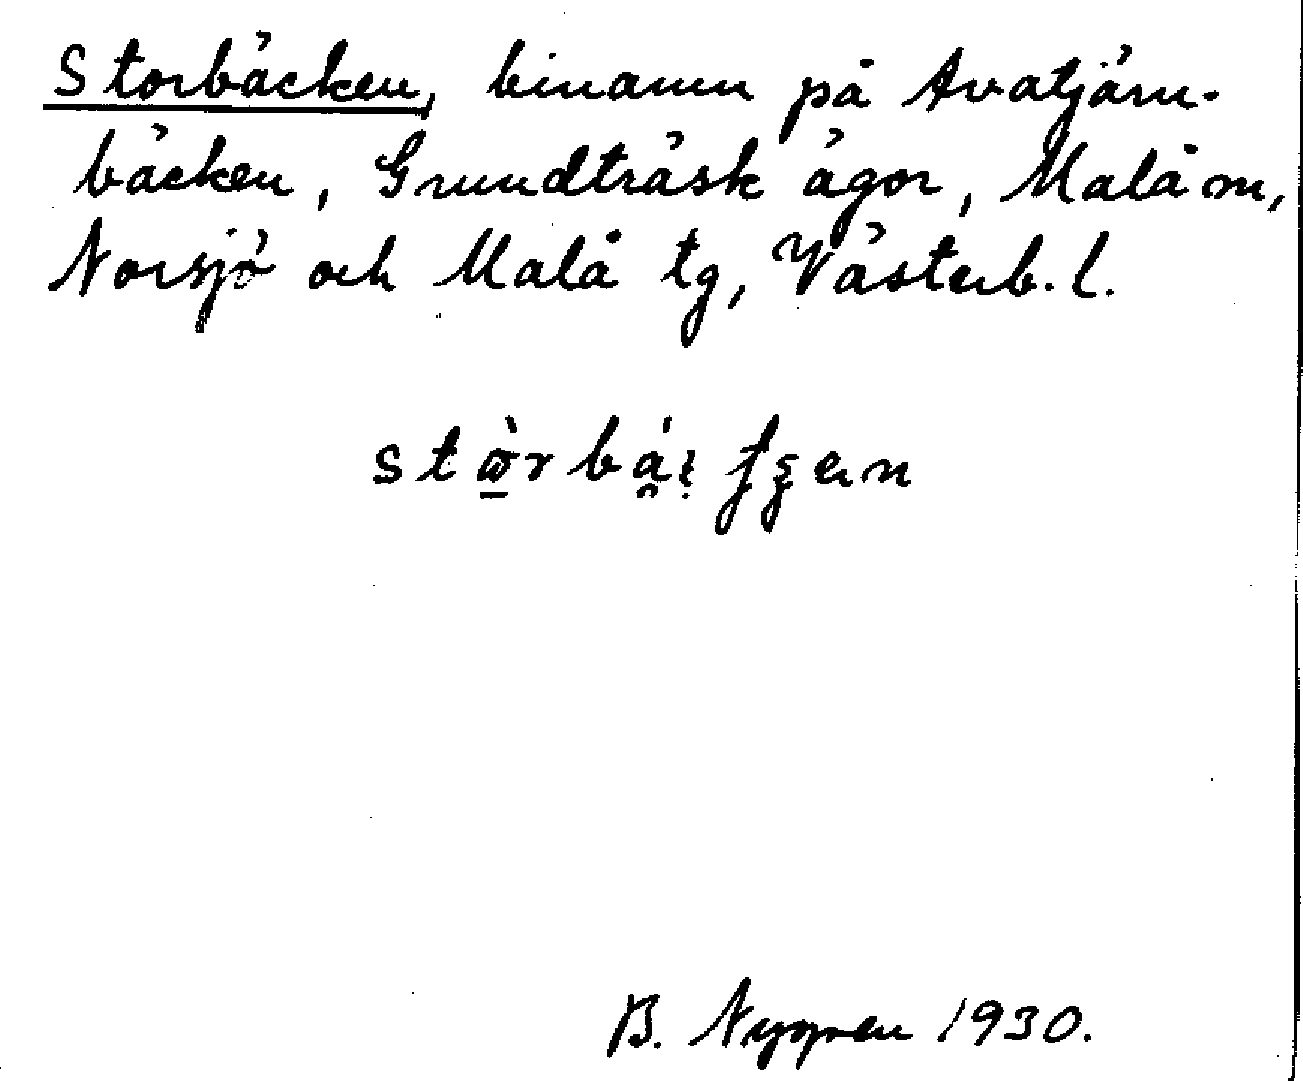 Storbäcken, binamn på Avatjärn-
bäcken, Grundträsk ägor, Malå sn,
Norsjö och Malå tg, Västerb. l.
B. Nygren 1930.